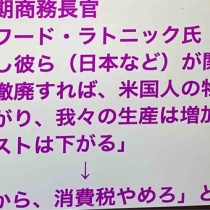 期商務長官
フード・ラトニック氏
し彼ら（日本など）が関
撤廃すれば、米国人の物
がり、我々の生産は増加
ストは下がる」
↓
から、消費税やめろ」と